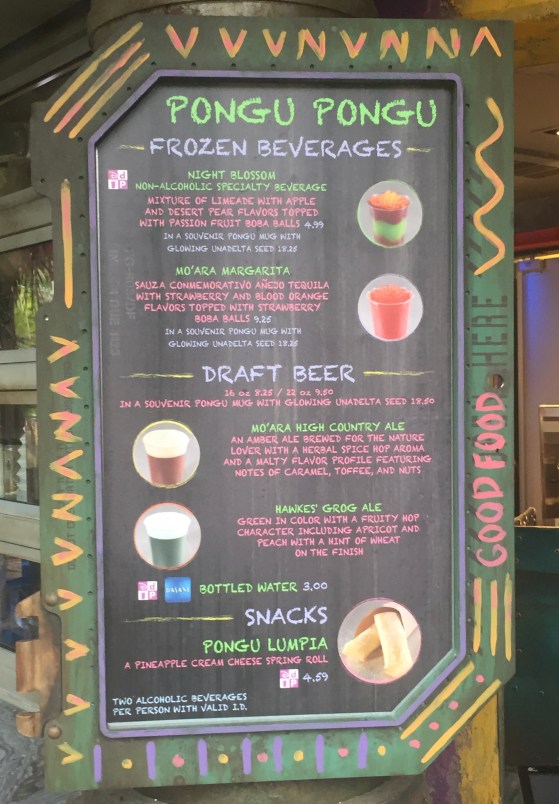 PONGU PONGU
FROZEN BEVERAGES
NIGHT BLOSSOM
NON-ALCOHOLIC SPECIALTY BEVERAGE
MIXTURE OF LIMEADE WITH APPLE
AND DESERT PEAR FLAVORS TOPPED
WITH PASSION FRUIT BOBA BALLS 4.99
IN A SOUVENIR PONGU MUG WITH
GLOWING UNADELTA SEED 18.25
MO'ARA MARGARITA
SAUZA CONMEMORATIVO AÑEJO TEQUILA
WITH STRAWBERRY AND BLOOD ORANGE
FLAVORS TOPPED WITH STRAWBERRY
BOBA BALLS 9.25
IN A SOUVENIR PONGU MUG WITH
GLOWING UNADELTA SEED 18.25
DRAFT BEER
16 OZ 8.25 / 22 OZ 9.50
IN A SOUVENIR PONGU MUG WITH GLOWING UNADELTA SEED 18.50
MO'ARA HIGH COUNTRY ALE
AN AMBER ALE BREWED FOR THE NATURE
LOVER WITH A HERBAL SPICE HOP AROMA
AND A MALTY FLAVOR PROFILE FEATURING
NOTES OF CARAMEL, TOFFEE, AND NUTS
HAWKES' GROG ALE
GREEN IN COLOR WITH A FRUITY HOP
CHARACTER INCLUDING APRICOT AND
PEACH WITH A HINT OF WHEAT
ON THE FINISH
DASANI
BOTTLED WATER 3.00
SNACKS
PONGU LUMPIA
A PINEAPPLE CREAM CHEESE SPRING ROLL
4.59
TWO ALCOHOLIC BEVERAGES
PER PERSON WITH VALID I.D.
GOOD FOOD HERE